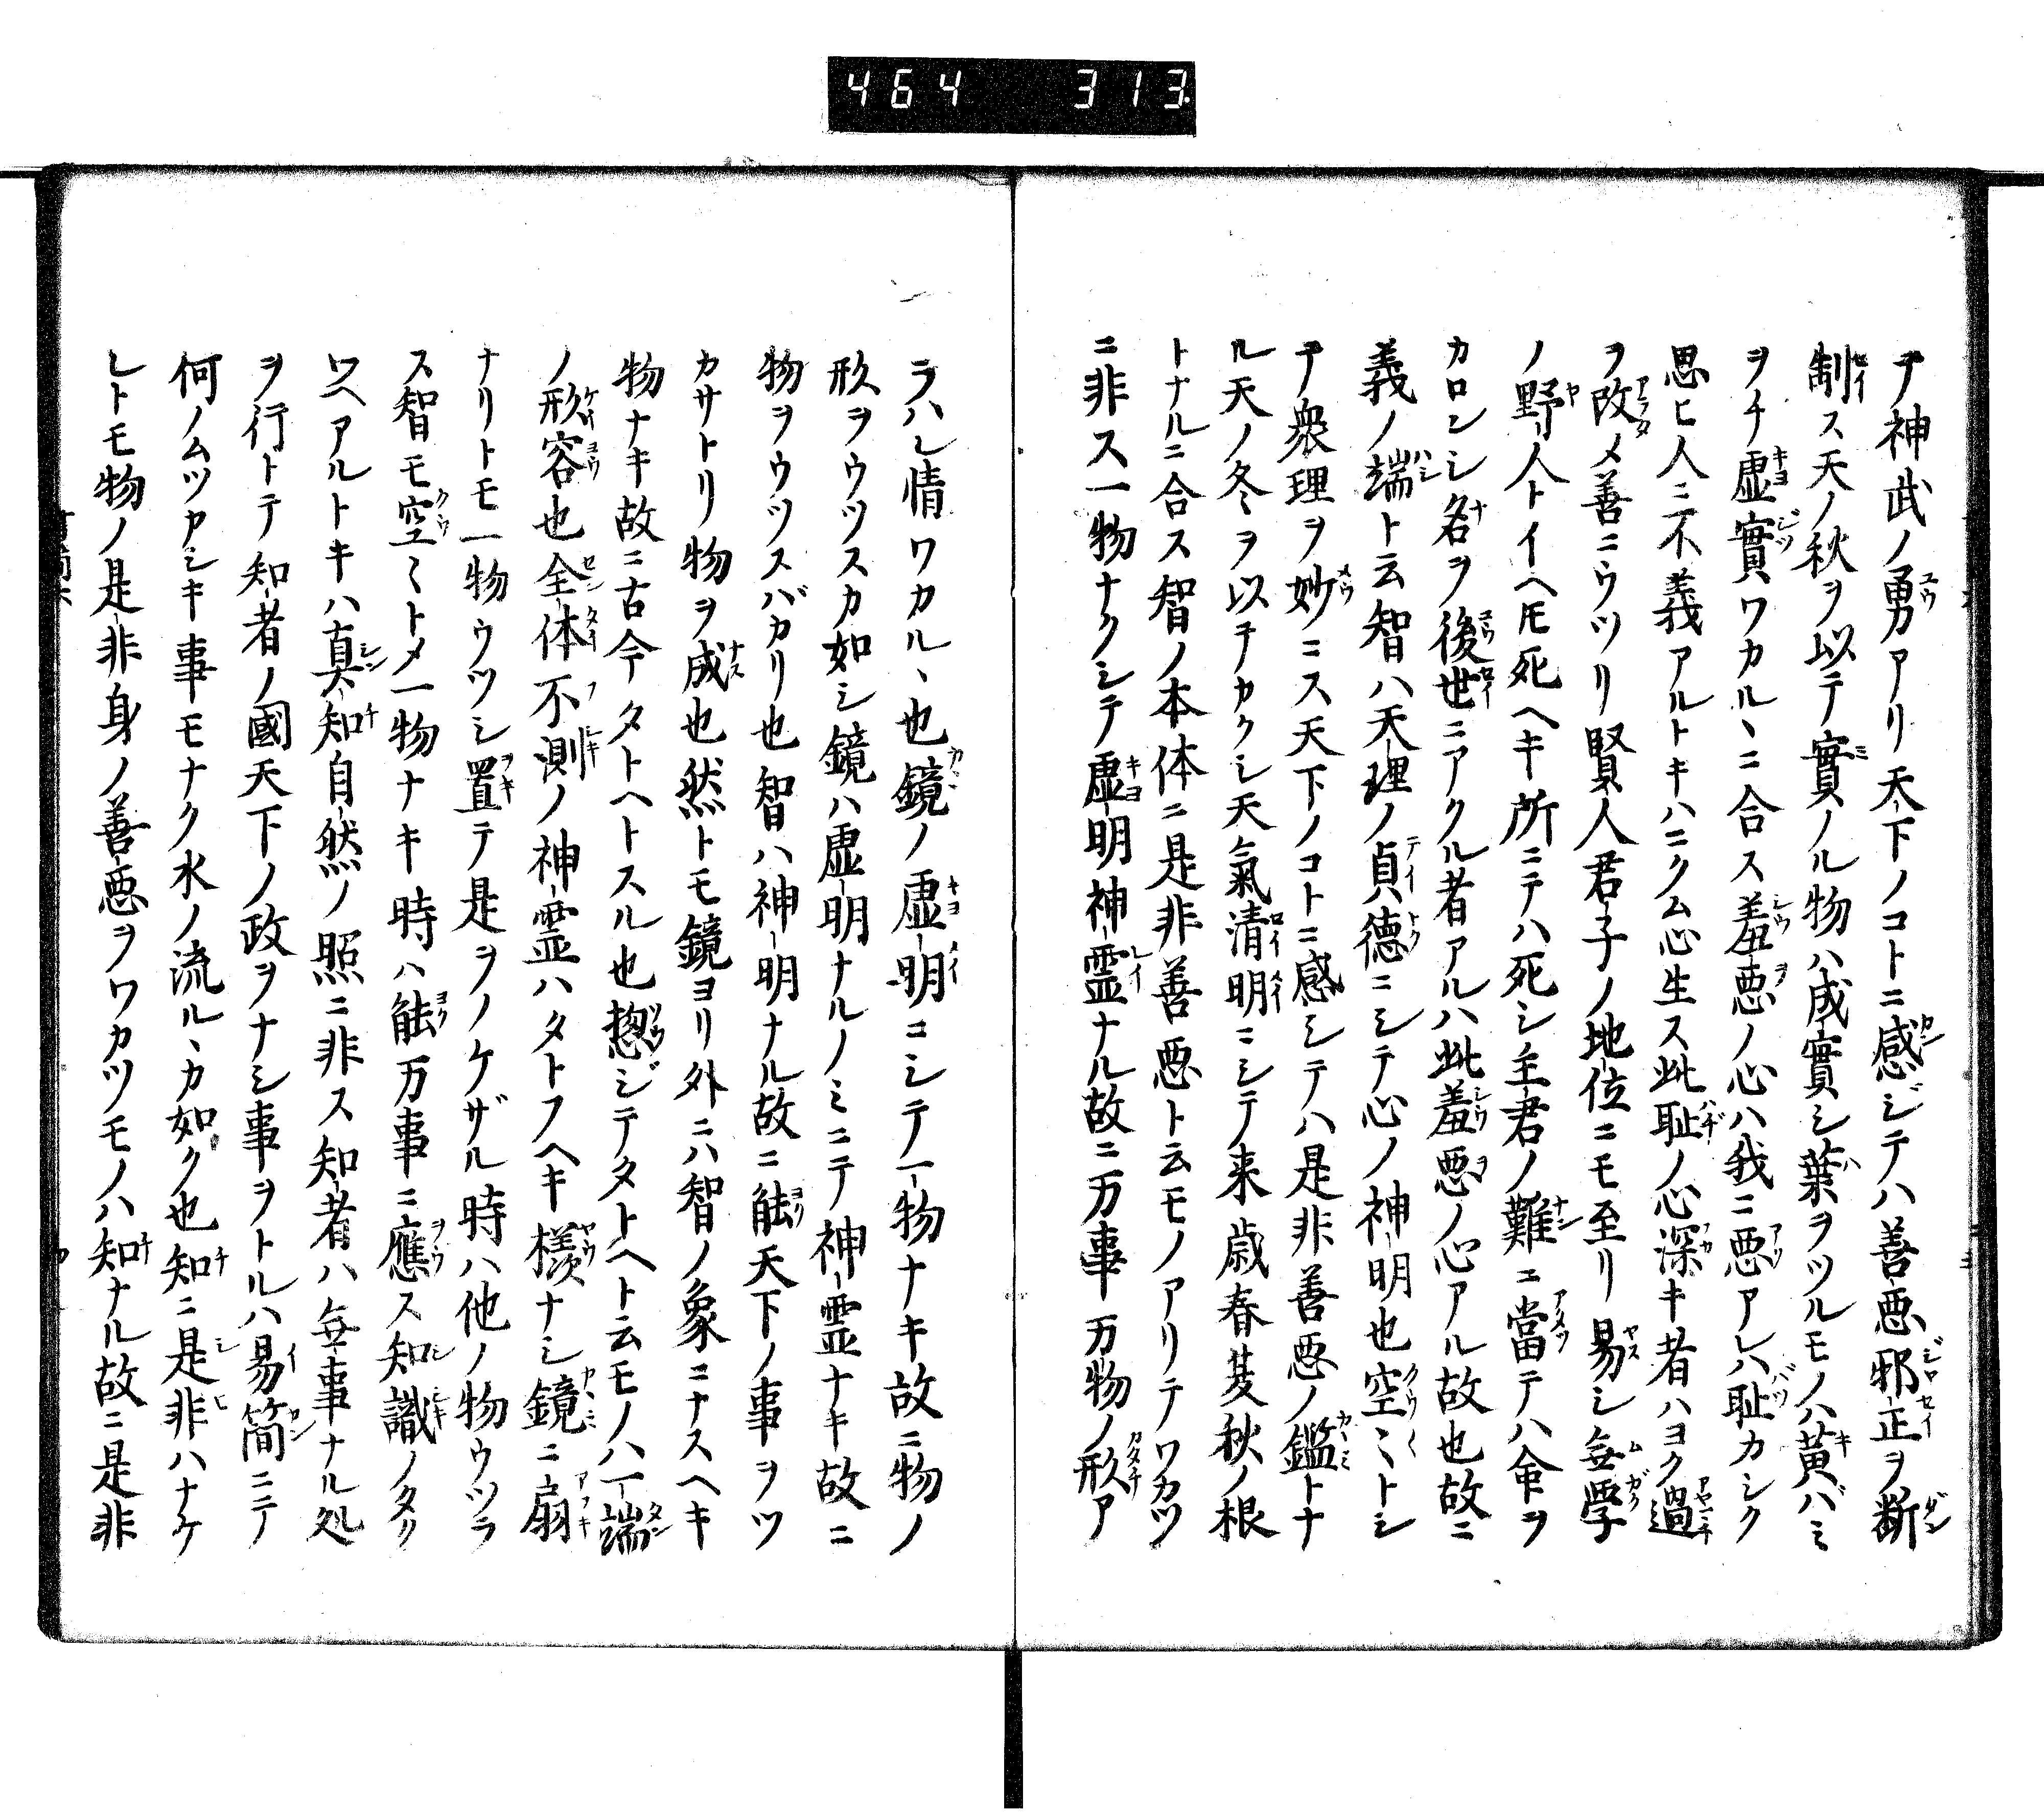 464 313
テ神武ノ勇アリ天下ノコトニ感シテハ善悪邪正ヲ断
制ス天ノ秋ヲ以テ實ノル物ハ成實シ葉ヲツルモノハ黄バミ
ヲチ虚實ワカルヽニ合ス羞悪ノ心ハ我ニ悪アレハ恥カシク
思ヒ人ニ不義アルトキハニクム心生ス此耻ノ心深キ者ハヨク過
ヲ改メ善ニウツリ賢人君子ノ地位ニモ至リ易シ無学
ノ野人トイヘ𪜈死ヘキ所ニテハ死シ主君ノ難ニ當テハ命ヲ
カロンシ名ヲ後世ニアクル者アルハ此羞悪ノ心アル故也故ニ
義ノ端ト云智ハ天理ノ貞徳ニシテ心ノ神明也空ミトシ
テ衆理ヲ妙ニス天下ノコトニ感シテハ是非善悪ノ鑑トナ
ル天ノ冬ヲ以チカクシ天氣清明ニシテ来歳春夏秋ノ根
トナルニ合ス智ノ本体ニ是非善悪ト云モノアリテワカツ
ニ非ス一物ナクシテ虚明神霊ナル故ニ万事万物ノ形ア
ラハレ情ワカルヽ也鏡ノ虚明ニシテ一物ナキ故ニ物ノ
形ヲウツスカ如シ鏡ハ虚明ナルノミニテ神霊ナキ故ニ
物ヲウツスバカリ也智ハ神明ナル故ニ能天下ノ事ヲツ
カサトリ物ヲ成也然トモ鏡ヨリ外ニハ智ノ象ニナスヘキ
物ナキ故ニ古今タトヘトスル也惣ジテタトヘト云モノハ一端
ノ形容也全体不測ノ神霊ハタトフヘキ様ナシ鏡ニ扇
ナリトモ一物ウツシ置テ是ヲノケザル時ハ他ノ物ウツラ
ス智モ空ミトメ一物ナキ時ハ能万事ニ應ス知識ノタク
ワヘアルトキハ真知自然ノ照ニ非ス知者ハ無事ナル処
ヲ行トテ知者ノ國天下ノ政ヲナシ事ヲトルハ易簡ニテ
何ノムツヤシキ事モナク水ノ流ルヽカ如ク也知ニ是非ハナケ
レトモ物ノ是非身ノ善悪ヲワカツモノハ知ナル故ニ是非